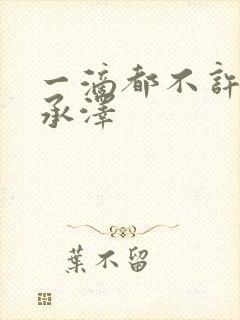 一滴都不許
承澤
葉不留